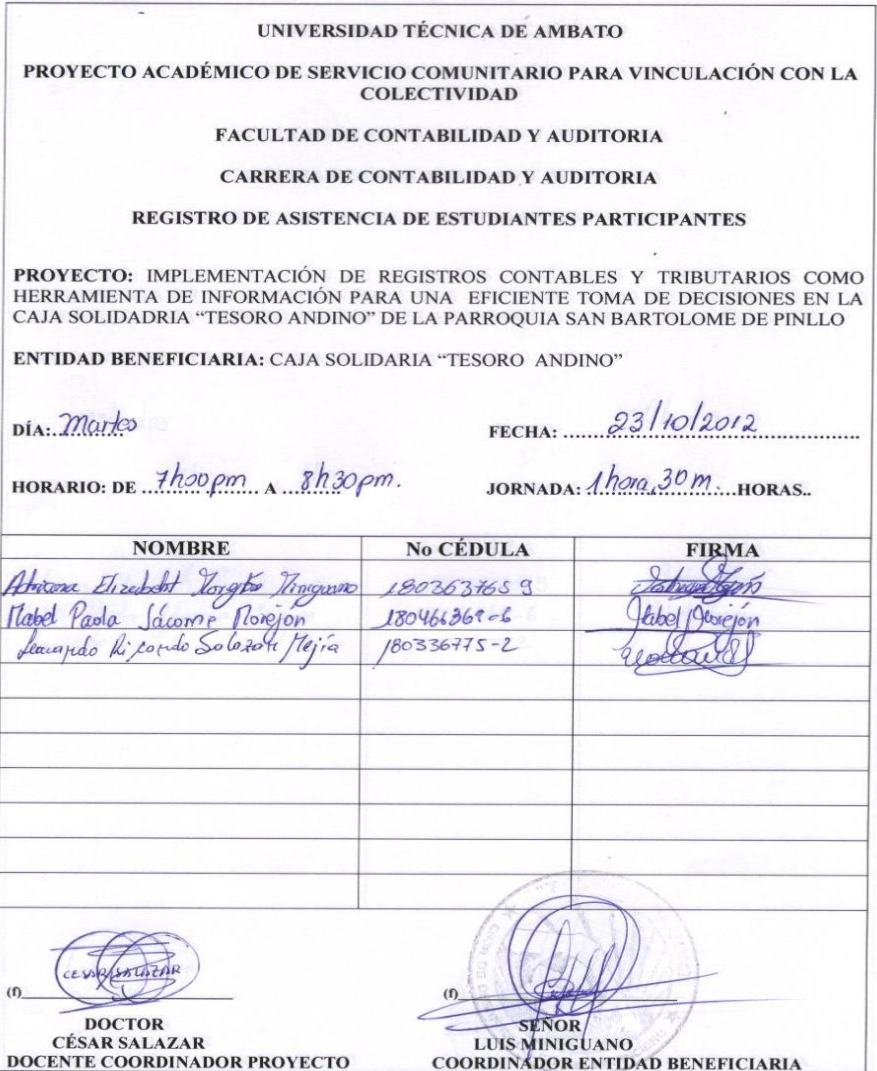 UNIVERSIDAD TÉCNICA DE AMBATO
PROYECTO ACADÉMICO DE SERVICIO COMUNITARIO PARA VINCULACIÓN CON LA
COLECTIVIDAD
FACULTAD DE CONTABILIDAD Y AUDITORIA
CARRERA DE CONTABILIDAD Y AUDITORIA
REGISTRO DE ASISTENCIA DE ESTUDIANTES PARTICIPANTES
PROYECTO: IMPLEMENTACIÓN DE REGISTROS CONTABLES Y TRIBUTARIOS COMO
HERRAMIENTA DE INFORMACIÓN PARA UNA EFICIENTE TOMA DE DECISIONES EN LA
CAJA SOLIDADRIA “TESORO ANDINO” DE LA PARROQUIA SAN BARTOLOME DE PINLLO
ENTIDAD BENEFICIARIA: CAJA SOLIDARIA “TESORO ANDINO”
DÍA: Martes FECHA: 23/10/2012
HORARIO: DE 7h00pm A 8h30pm. JORNADA: 1 hora, 30 m. HORAS..
NOMBRE No CÉDULA FIRMA
Elizabeht 180363765 9
Mabel Paola Jácome Morejón 180466369-6 Mabel Morejón
Leonardo Ricardo Salazar Mejía 180336775-2
CESAR SALAZAR
(f) (f)
DOCTOR SEÑOR
CÉSAR SALAZAR LUIS MINIGUANO
DOCENTE COORDINADOR PROYECTO COORDINADOR ENTIDAD BENEFICIARIA